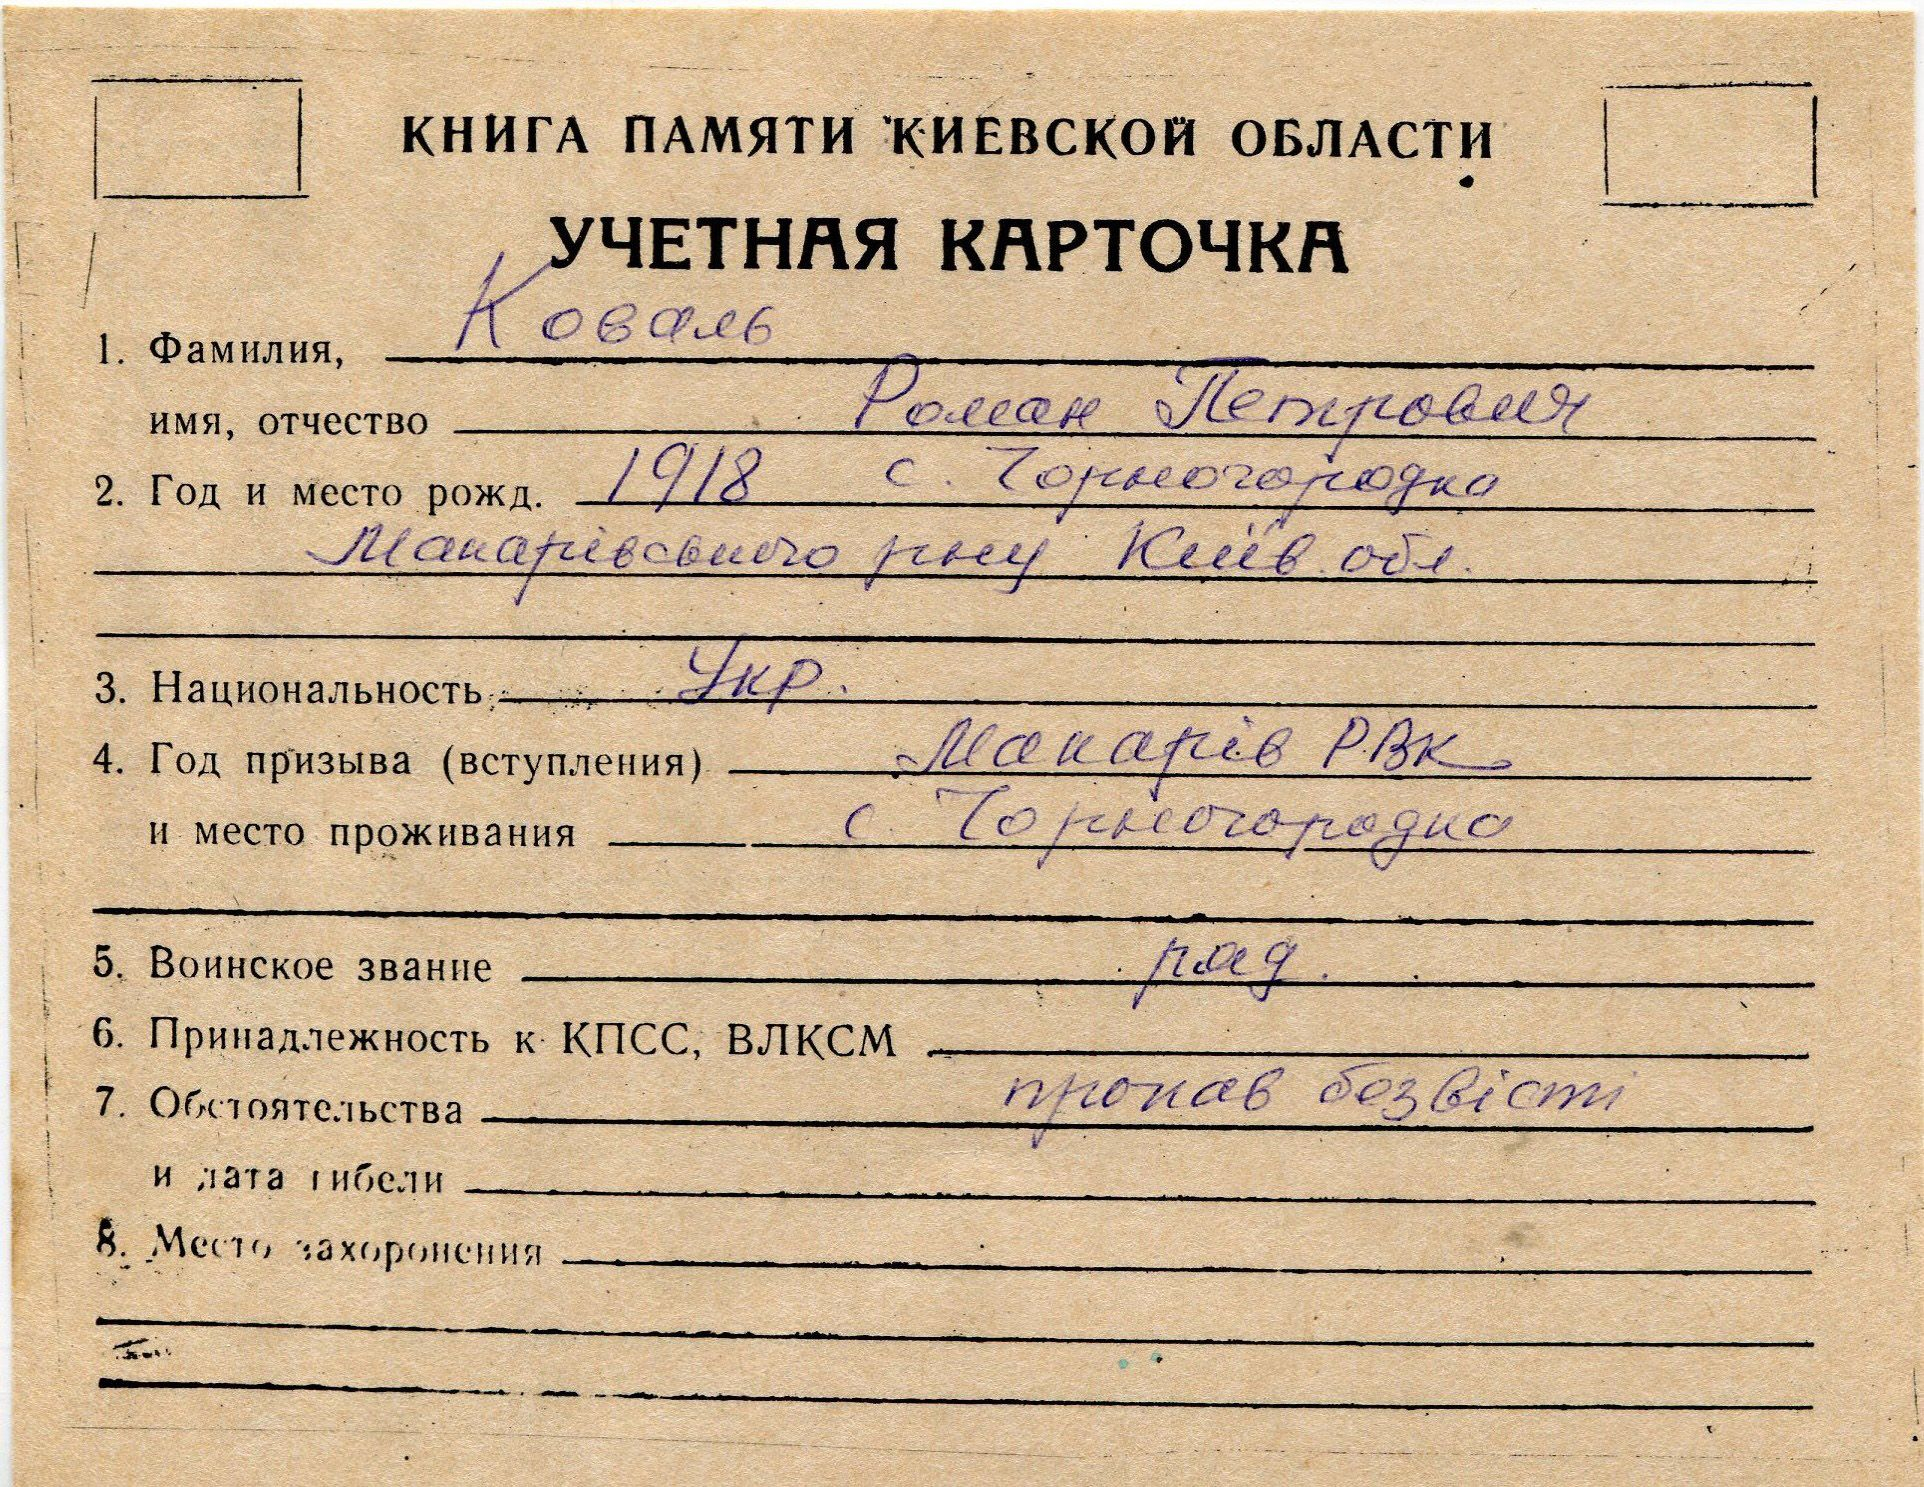 КНИГА ПАМЯТИ КИЕВСКОЙ ОБЛАСТИ
УЧЕТНАЯ КАРТОЧКА
1. Фамилия, Коваль
имя, отчество Роман Петрович
2. Год и место рожд. 1918 с. Чорногородка
Макарівського р-ну Київ. обл.
3. Национальность Укр.
4. Год призыва (вступления) Макарів РВК
и место проживания с. Чорногородка
5. Воинское звание ряд.
6. Принадлежность к КПСС, ВЛКСМ
7. Обстоятельства пропав безвісті
и дата гибели
8. Место захоронения